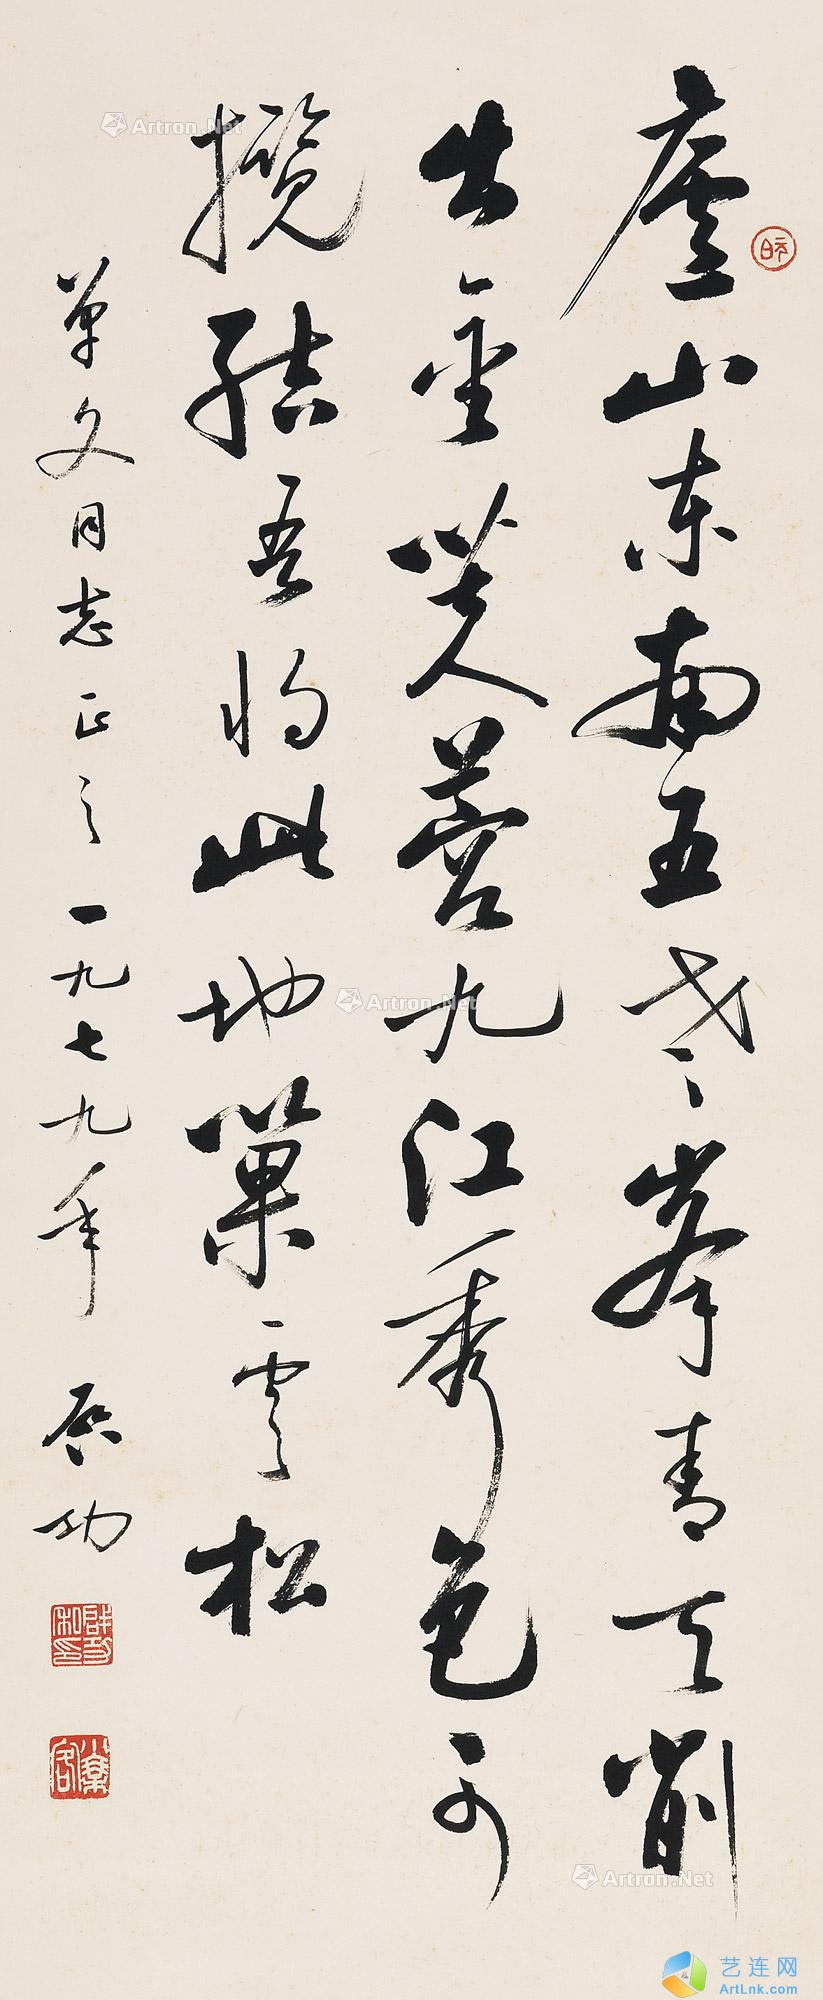 廬山东南五老峯青天削
出金芙蓉九江秀色可
攬結吾将此地巢雲松
草文同志正之一九七九年 启功
Artron.Net
Artron.Net
Artron.Net
艺连网
ArtLnk.com